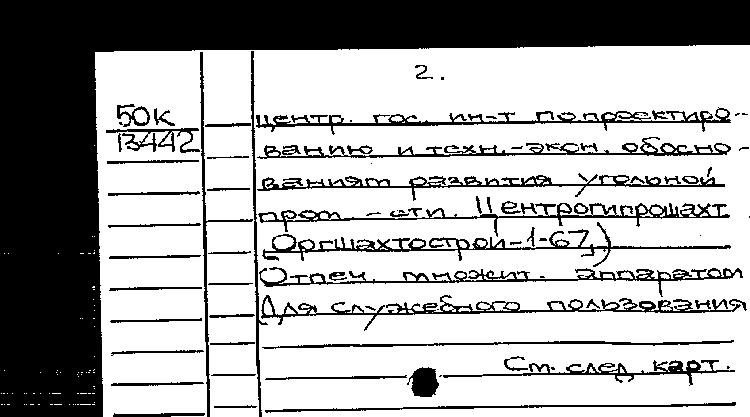 2.
50к
13442
центр. гос. ин-т по проектиро-
ванию и техн.-экон. обосно-
ваниям развития угольной
пром.-сти. Центрогипрошахт.
Оргшахтострой-1-67.)
Отпеч. множит. аппаратом
Для служебного пользования
См. след. карт.